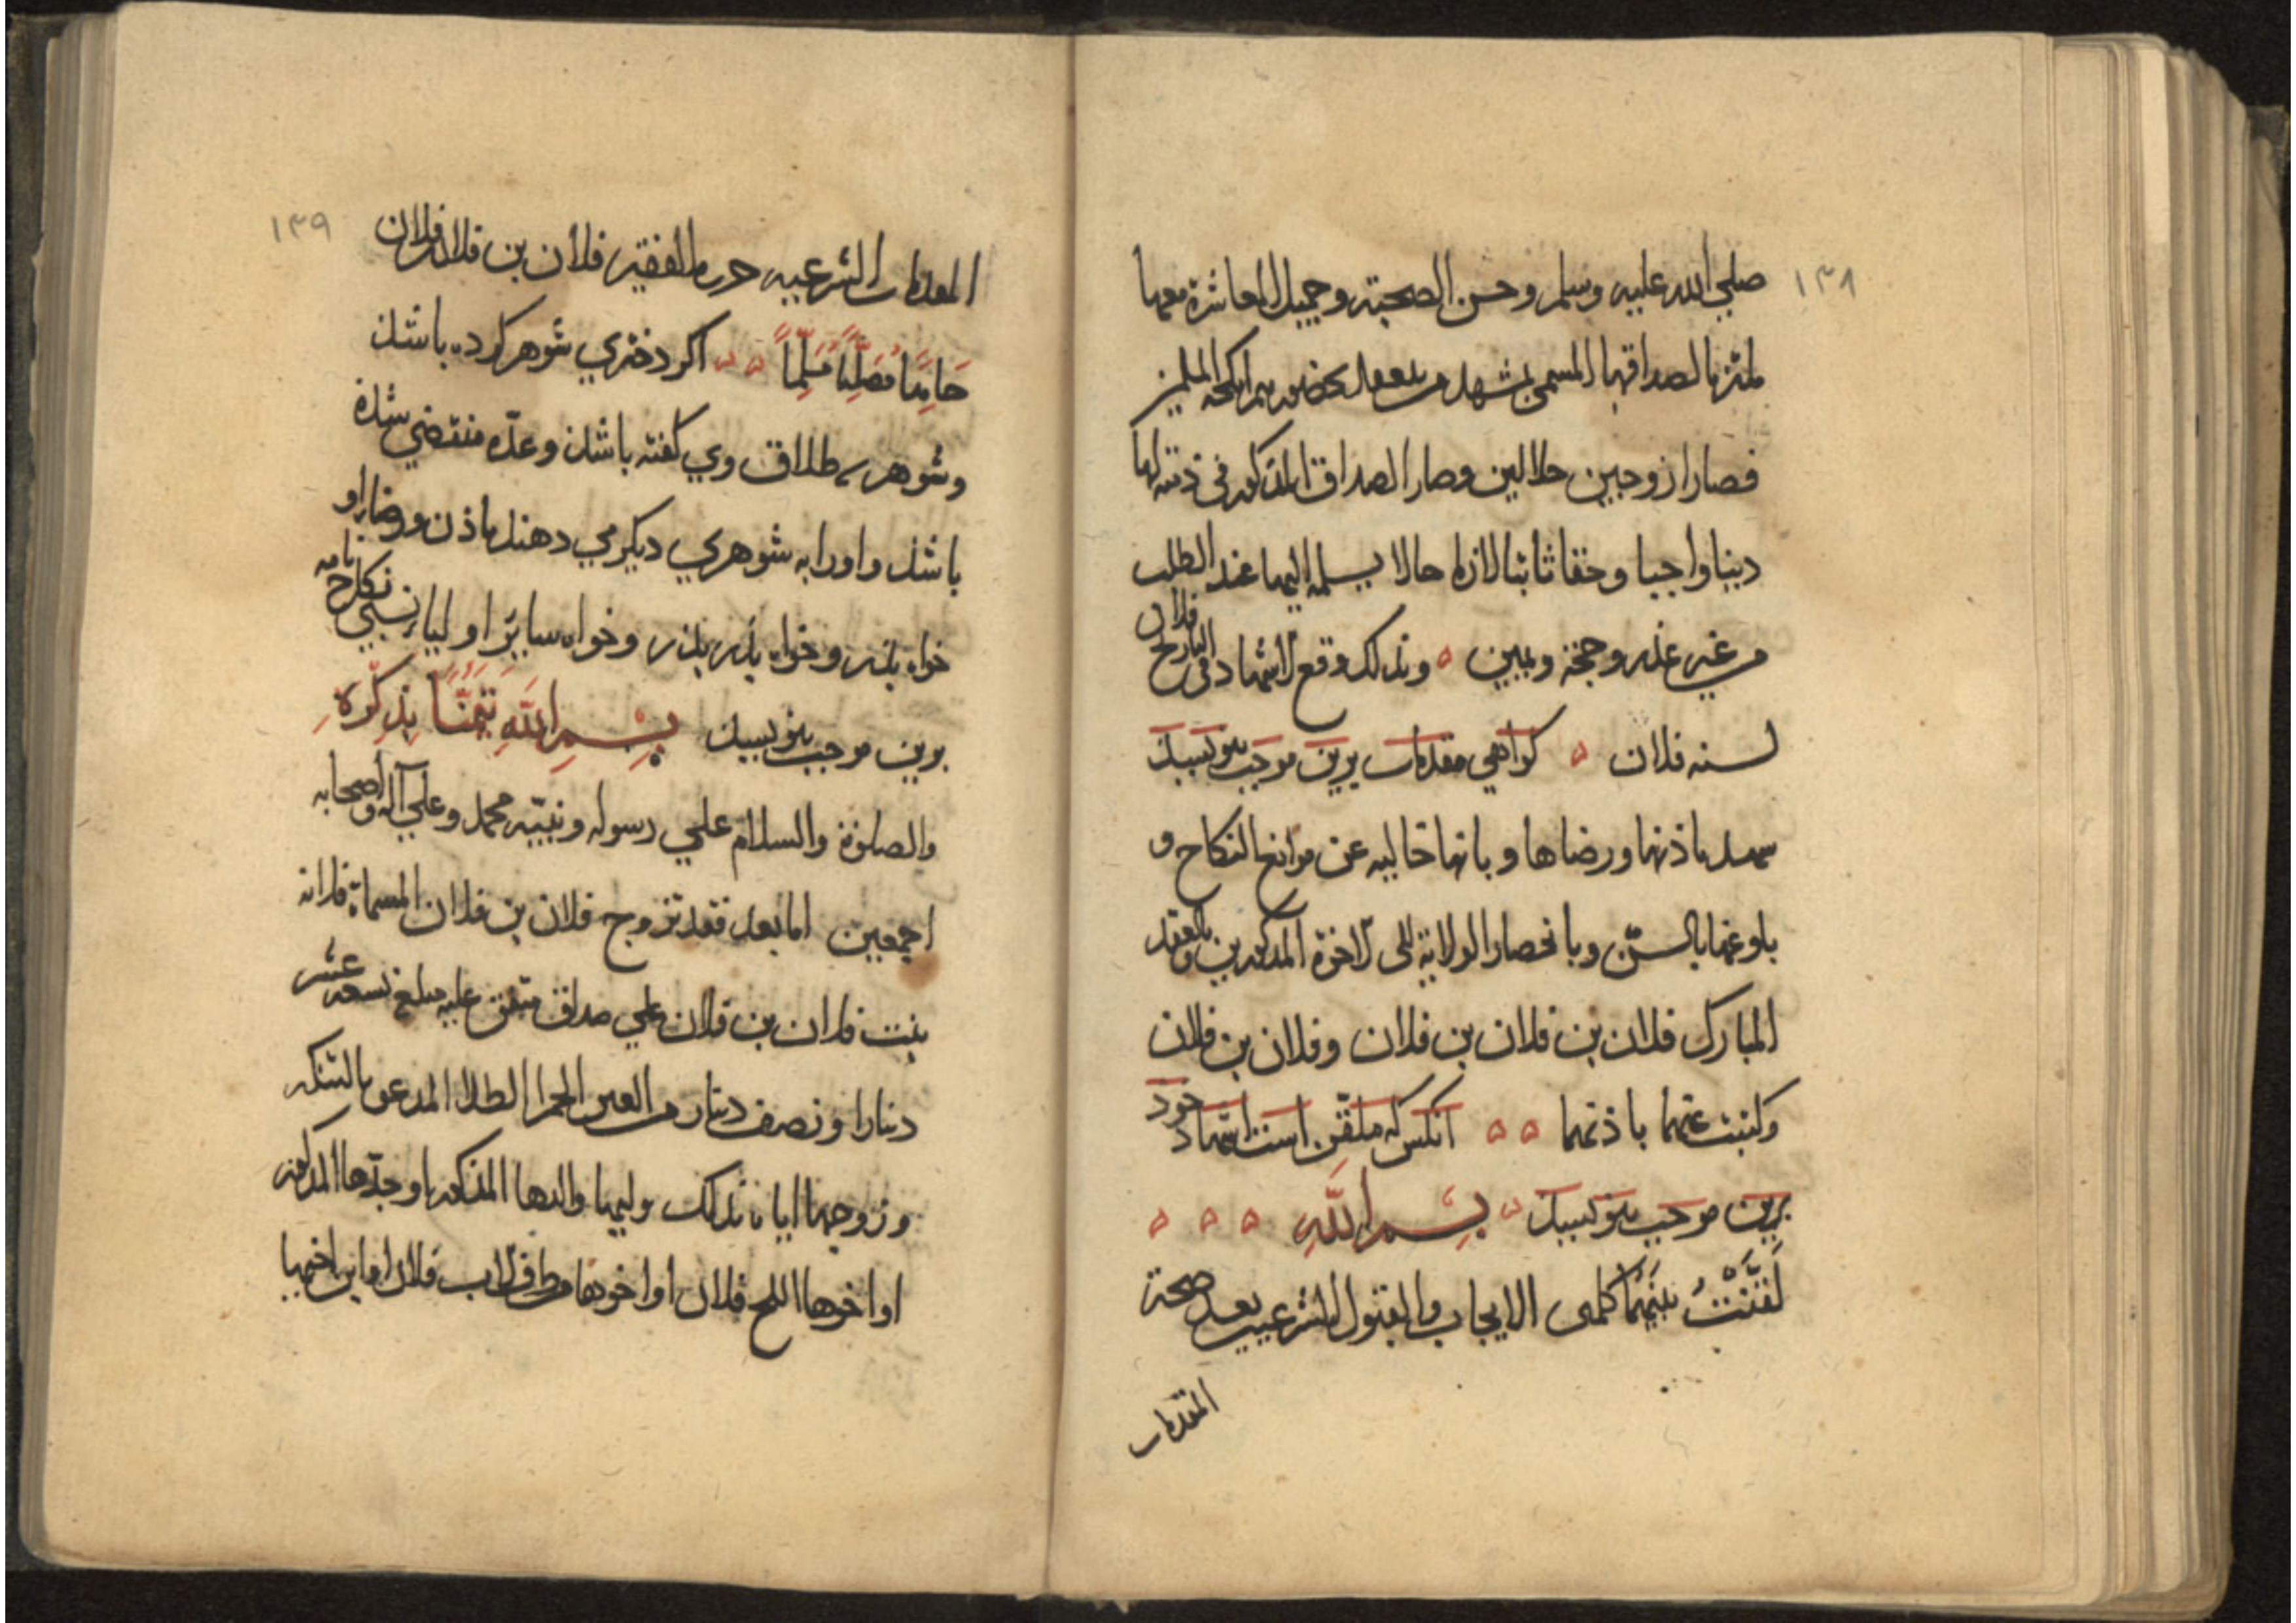 ١٣٨
صلي الله عليه وسلم وحسن الصحبة وجميل المعاشرة معها
ملتزما لصداقها المسمى بمشهد من ينعقد بحضورهم انكحة المسلمين
فصارا زوجين حلالين وصار الصداق المذكور في ذمته لها
دينا واجبا وحقا ثابتا لازما حالا يسلمه اليها عند الطلب
من غير عذر وحجة ويمين وبذلك وقع الاشهاد في التاريخ فلان
لسنه فلان كواهي مقدمات برين موجب بنويسيذ
باذنها ورضاها وبانها خاليه عن موانع النكاح و
بلوغها بالسن وبانحصار الولاية الى الاخوة المذكورين وبالعقد
المبارك فلان بن فلان بن فلان وفلان بن فلان
وكتبت عنهما باذنهما آنكس كه ملقن است اشهاد خود
برين موجب بنويسيذ بسم الله
لقنت بينهما كلمتي الايجاب والقبول الشرعيين بعد صحة
المقدمات
١٣٩
المقدمات الشرعيه حرره الفقير فلان بن فلان بن فلان
حامدا مصليا مسلما اكر دختري شوهر كرده باشد
وشوهرى طلاق وي كفته باشذ وعده منقضي شده
باشذ واورا به شوهري ديكر مي دهند باذن ورضاء او
خواه پذر وخواه پذر پذر وخواه ساير اوليا نسبي نكاح نامه
برين موجب بنويسيذ بسم الله تيمنا بذكره
والصلوة والسلام علي رسوله ونبيه محمد وعلي آله واصحابه
اجمعين اما بعد فقد تزوج فلان بن فلان المسماة فلانه
بنت فلان بن فلان علي صداق متفق عليه مبلغ تسعه عشر
دينارا ونصف دينار من العين الحمرا الطلا المدعو بالتنكه
وزوجها اياه بذلك وليها والدها المذكور او جدها المذكور
او اخوها فلان او اخوها من طرف الاب فلان او ابن اخيها